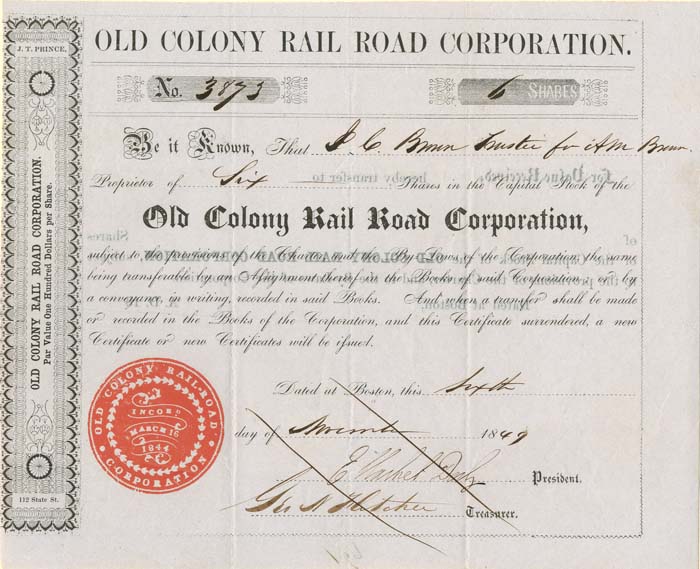 J. T. PRINCE,
OLD COLONY RAIL ROAD CORPORATION.
Par Value One Hundred Dollars per Share.
112 State St.
OLD COLONY RAIL ROAD CORPORATION.
No. 3873
6 SHARES
Be it Known, That J. C. Trustee for A M
Proprietor of Six Shares in the Capital Stock of the
Old Colony Rail Road Corporation,
subject to the provisions of the Charter and the By-Laws of the Corporation, the same
being transferable by an Assignment thereof in the Books of said Corporation, or by
a conveyance in writing, recorded in said Books. And when a transfer shall be made
or recorded in the Books of the Corporation, and this Certificate surrendered, a new
Certificate or new Certificates will be issued.
OLD COLONY RAIL-ROAD
CORPORATION
INCORP
MARCH 16
1844
Dated at Boston, this Sixth
day of November 1849
President.
Geo N Fletcher Treasurer.